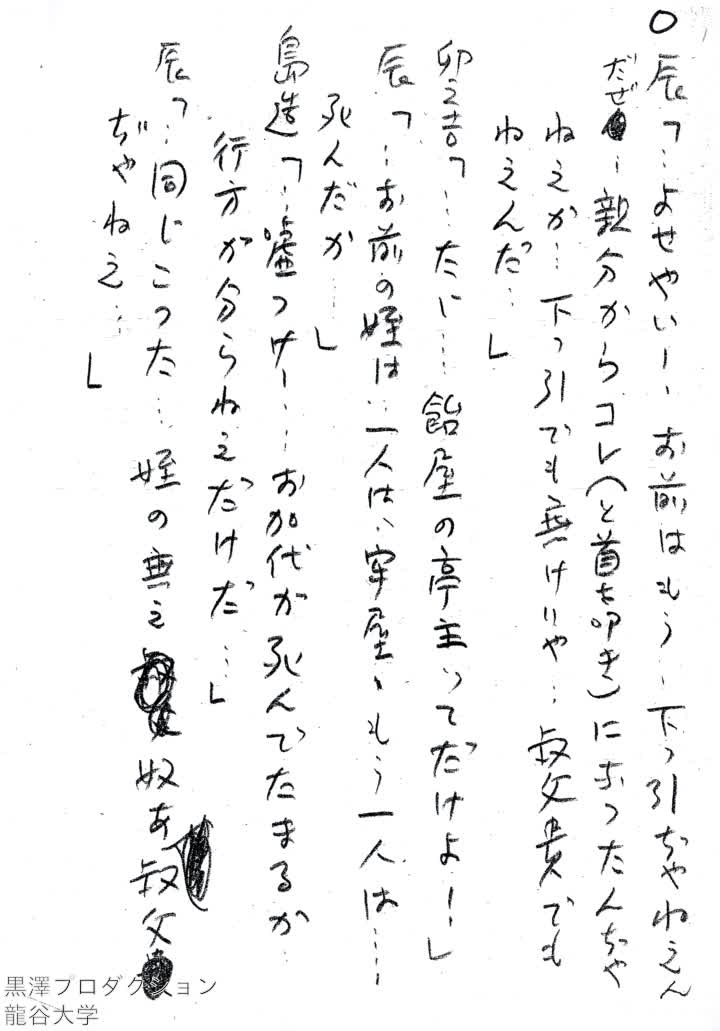 ○
辰「‥よせやい！‥お前はもう‥下っ引ぢゃねえん
だぜ‥親分からコレ(と首を叩き)になったんぢゃ
ねえか‥下っ引でも無けりゃ‥叔父貴でも
ねえんだ‥」
卯之吉「‥ただ…飴屋の亭主ってだけよ！」
辰「‥お前の姪は‥一人は、牢屋、もう一人は…
死んだか…」
島造「‥嘘つけ！‥お加代が死んでたまるか‥
行方が分らねえだけだ…」
辰「‥同じこった…姪の無え
奴あ叔父
ぢゃねえ…」
黒澤プロダクション
龍谷大学